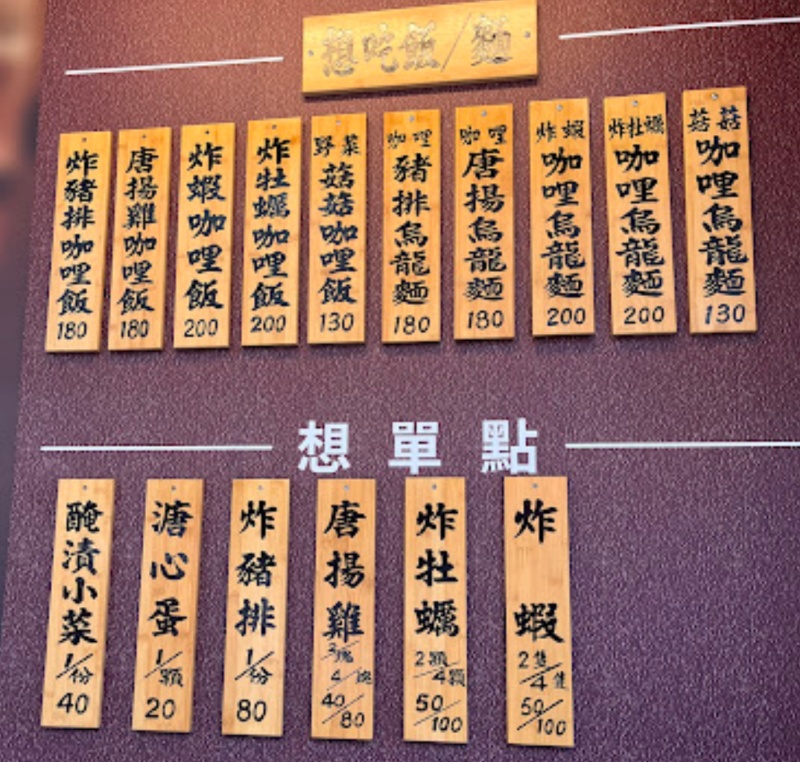 想吃飯/麵
炸豬排咖哩飯
180
唐揚雞咖哩飯
180
炸蝦咖哩飯
200
炸牡蠣咖哩飯
200
野菜
菇菇咖哩飯
130
咖哩
豬排烏龍麵
180
咖哩
唐揚烏龍麵
180
炸蝦
咖哩烏龍麵
200
炸牡蠣
咖哩烏龍麵
200
菇菇
咖哩烏龍麵
130
想單點
醃漬小菜
1/份
40
溏心蛋
1/顆
20
炸豬排
1/份
80
唐揚雞
2塊/4塊
40/80
炸牡蠣
2顆/4顆
50/100
炸蝦
2隻/4隻
50/100